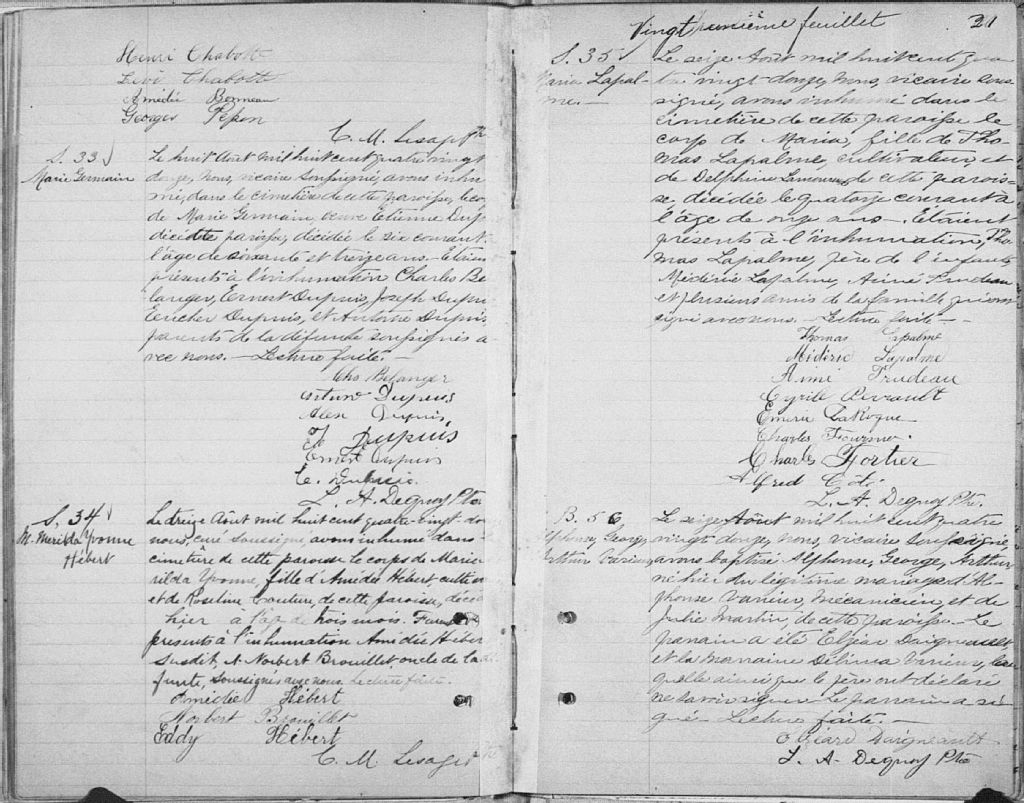 Henri Chabott
Levi Chabotte
Amédée Bonneau
Georges Pepin
C. M. Lesage Ptre
S. 33
Marie Germain
Le huit Août mil huit cent quatre vingt
douze, nous, vicaire soussigné, avons inhu
mé, dans le cimetière de cette paroisse, le co
de Marie Germain, veuve Etienne Dup
de cette paroisse, décédée le six courant
l'âge de soixante et treize ans. - Etaien
présents à l'inhumation Charles Be
langer, Ernest Dupuis, Joseph Dupu
Dupuis, et Antoine Dupuis,
parents de la défunte soussignés a-
vec nous. - Lecture faite -
Chs Belanger
Arthur Dupuis
Alex Dupuis
Dupuis
Ernest Dupuis
L. A. Deguoy Ptre
S. 34
M. Merilda Yvonne
Hébert
Le treize Août mil huit cent quatre-vingt-do
nous, curé soussigné, avons inhumé dans
cimetière de cette paroisse le corps de Marie
rilda Yvonne, fille d'Amédée Hébert cultiv
et de Roseline Couture, de cette paroisse, décéd
hier à l'âge de trois mois. Furent
présents à l'inhumation Amédée Héber
susdit, & Norbert Brouillet oncle de la dé
funte, soussignés avec nous. Lecture faite.
Amédée Hébert
Norbert Brouillet
Eddy Hébert
C. M. Lesage Ptre
Vingt unième feuillet 21
S. 35
Maria Lapal-
me. -
Le seize Août mil huit cent qua
tre vingt douze, nous, vicaire sous
signé, avons inhumé dans le
cimetière de cette paroisse le
corps de Maria, fille de Tho-
mas Lapalme, cultivateur, et
de Delphine Lamoureux de cette parois-
se, décédée le quatorze courant à
l'âge de onze ans - Etaient
présents à l'inhumation, Tho
mas Lapalme, père de l'enfant
Médéric Lapalme, Aimé Trudeau
et plusieurs amis de la famille qui ont
signé avec nous. - Lecture faite -
Thomas Lapalme
Médéric Lapalme
Aimé Trudeau
Cyrille Perrault
Emerie LaRoque
Charles Fournier
Charles Fortier
Alfred Côté
L. A. Deguoy Ptre
B. 56
Alphonse, George,
Arthur Varieur
Le seize Août mil huit cent quatre
vingt douze, nous, vicaire soussigné
avons baptisé Alphonse, George, Arthur
né hier du légitime mariage d'Al-
phonse Varieur, mécanicien, et de
Julie Martin, de cette paroisse - Le
parrain a été Elzéar Daigneault,
et la marraine Délima Varieur, les
quels ainsi que le père ont déclaré
ne savoir signer. Le parrain a si
gné. Lecture faite. -
Daigneault
L. A. Deguoy Ptre